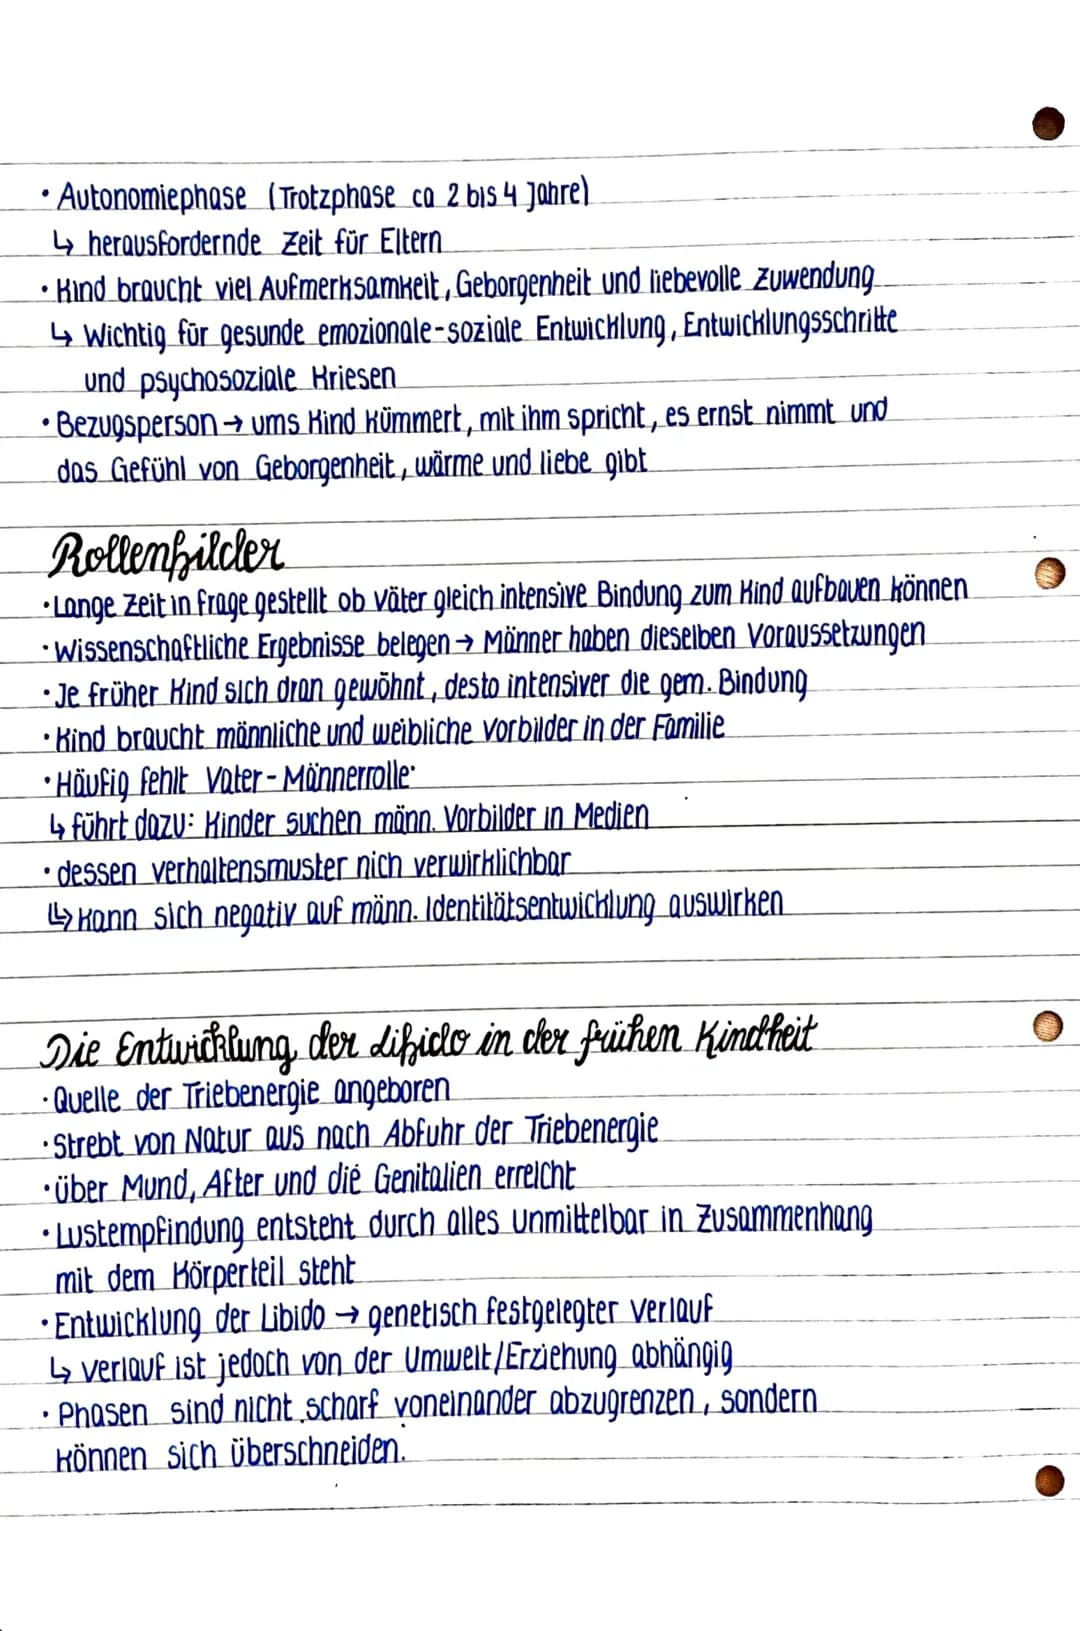 • Autonomiephase (Trotzphase ca 2 bis 4 Jahre)
↳ herausfordernde Zeit für Eltern
• Kind braucht viel Aufmerksamkeit, Geborgenheit und liebevolle Zuwendung
↳ Wichtig für gesunde emozionale-soziale Entwicklung, Entwicklungsschritte
und psychosoziale Kriesen
• Bezugsperson → ums Kind kümmert, mit ihm spricht, es ernst nimmt und
das Gefühl von Geborgenheit, wärme und liebe gibt
Rollenbilder
• Lange Zeit in frage gestellt ob väter gleich intensive Bindung zum Kind aufbauen können
• Wissenschaftliche Ergebnisse belegen → Männer haben dieselben Voraussetzungen
• Je früher Kind sich dran gewöhnt, desto intensiver die gem. Bindung
• Kind braucht männliche und weibliche Vorbilder in der Familie
• Häufig fehlt Vater-Männerrolle
↳ führt dazu: Kinder suchen männ. Vorbilder in Medien
• dessen verhaltensmuster nich verwirklichbar
↳ kann sich negativ auf männ. Identitätsentwicklung auswirken
Die Entwicklung der Libido in der frühen Kindheit
• Quelle der Triebenergie angeboren
• Strebt von Natur aus nach Abfuhr der Triebenergie
• über Mund, After und die Genitalien erreicht
• Lustempfindung entsteht durch alles unmittelbar in Zusammenhang
mit dem Körperteil steht
• Entwicklung der Libido → genetisch festgelegter verlauf
↳ verlauf ist jedoch von der Umwelt/Erziehung abhängig
• Phasen sind nicht scharf voneinander abzugrenzen, sondern
können sich überschneiden.